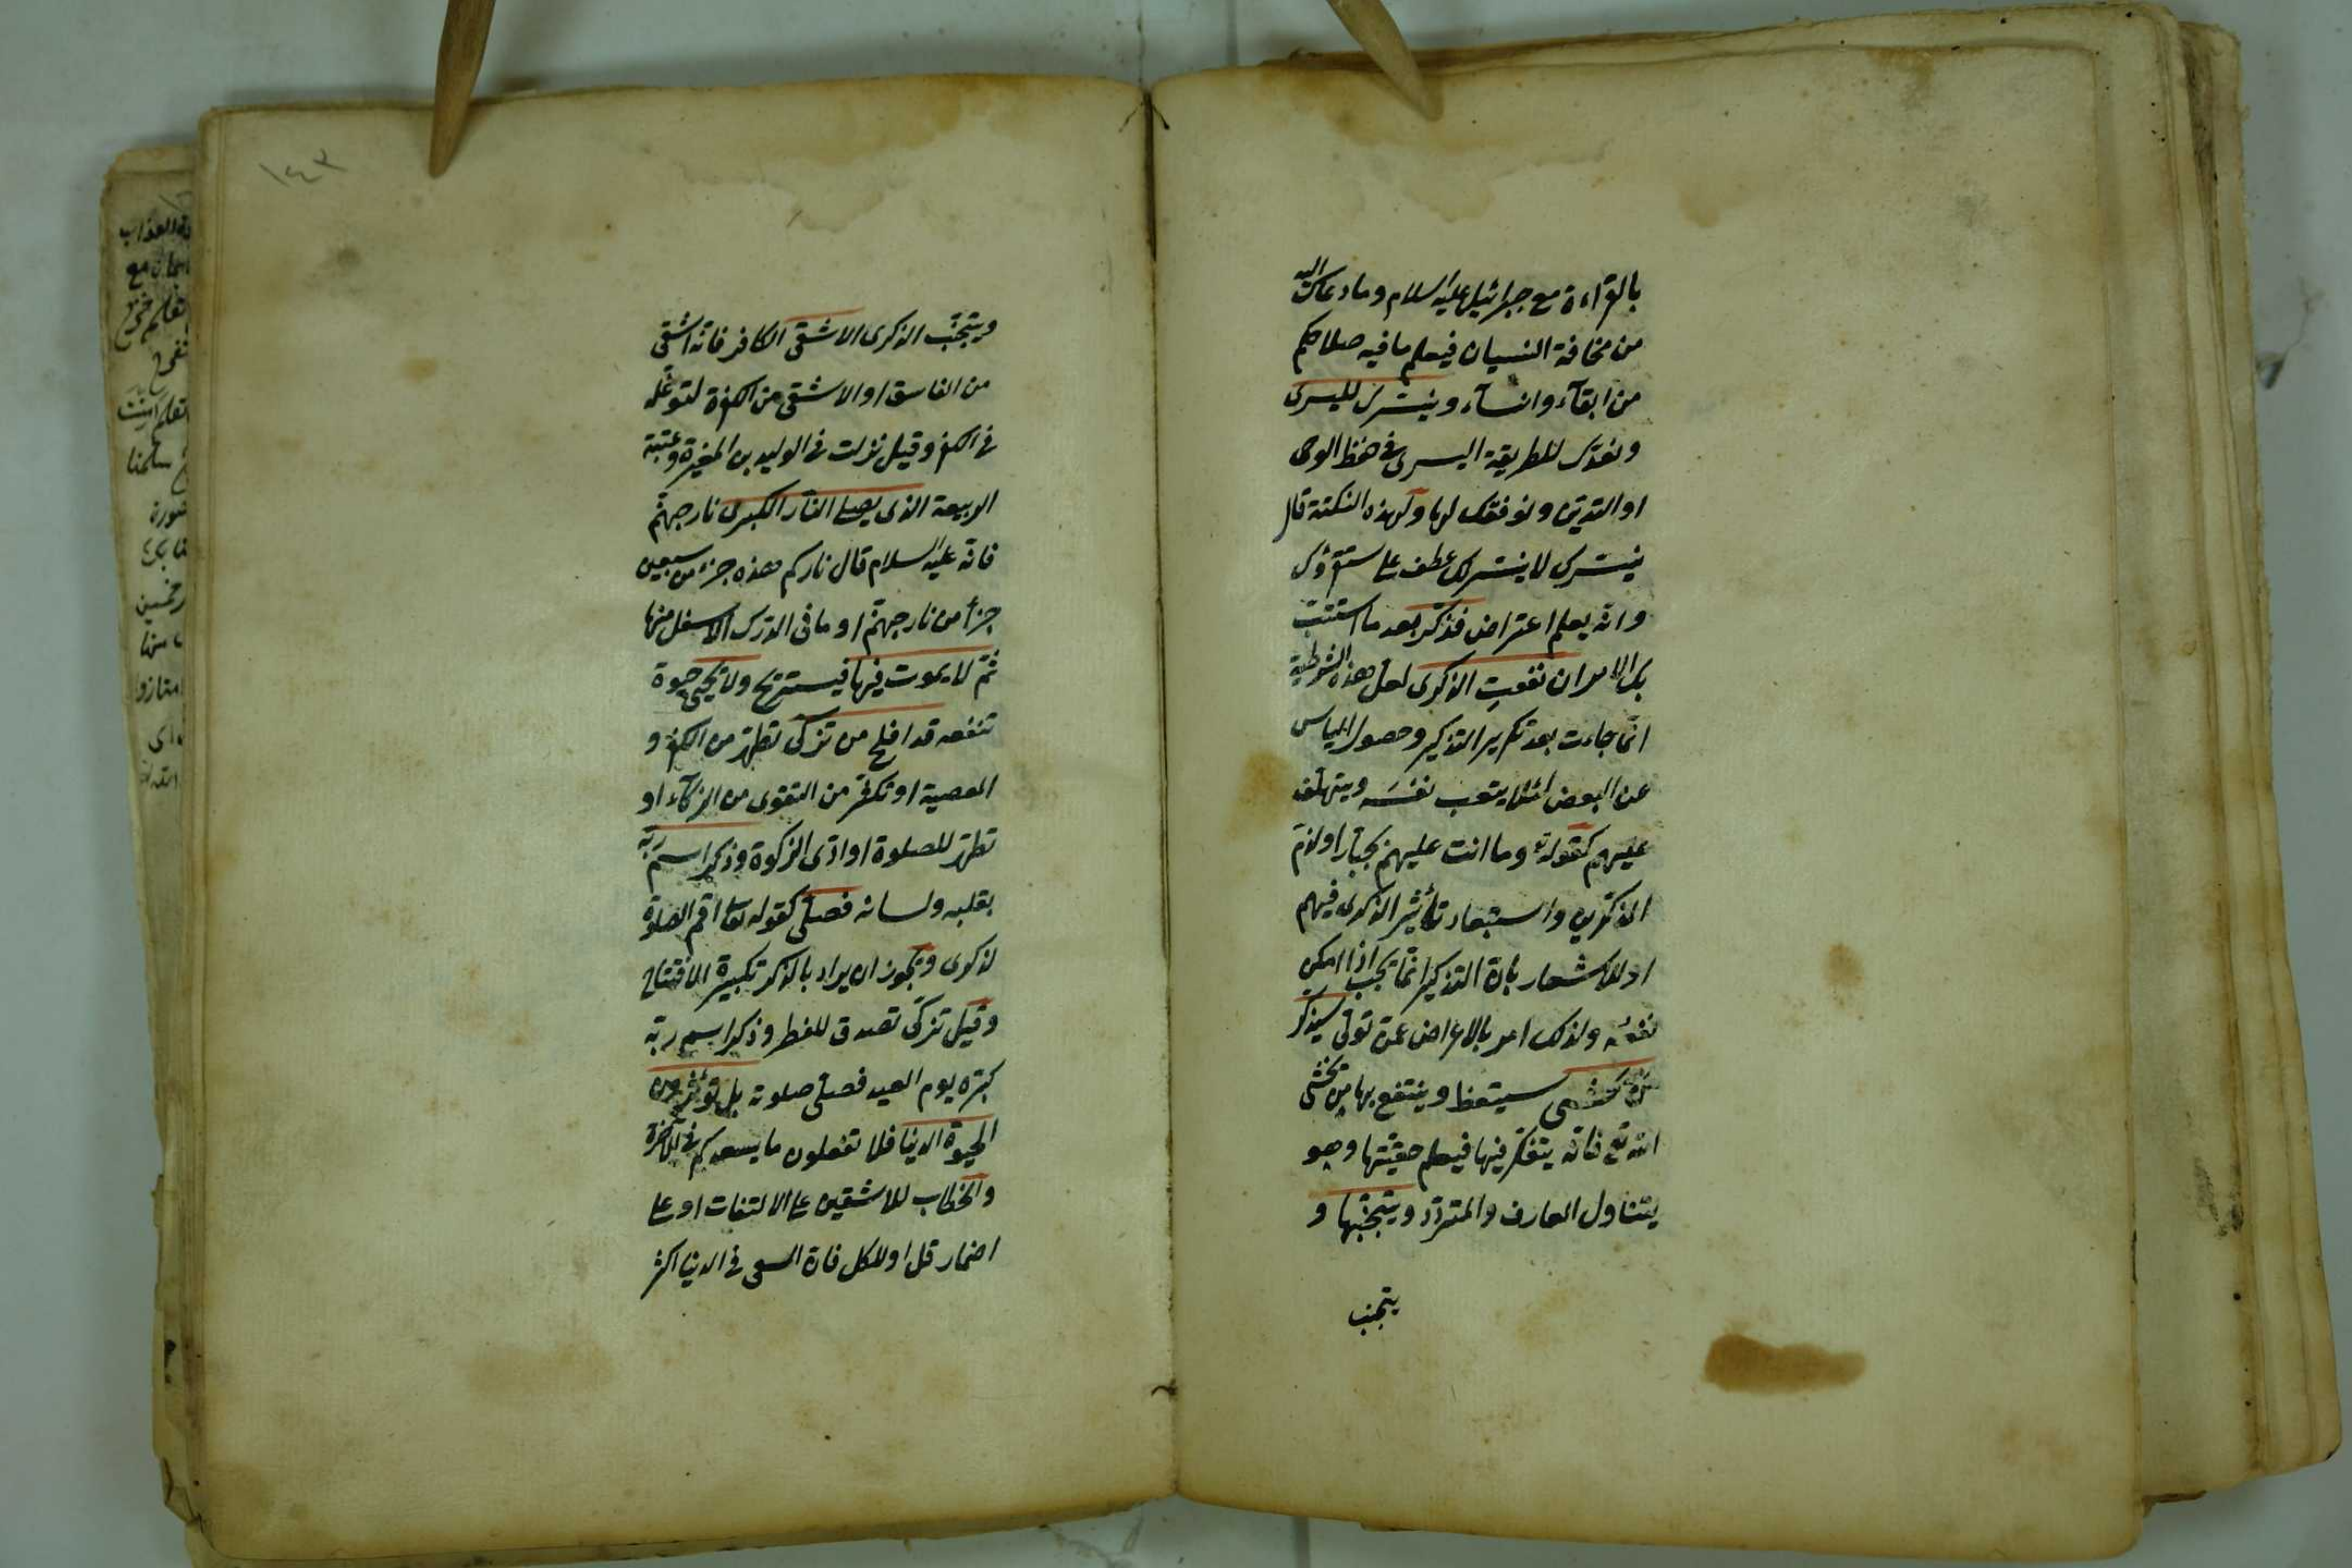 بالقراءة مع جبرائيل عليه السلام وما دعاك اليه
من مخافة النسيان فيعلم ما فيه صلاحكم
من ابقآء وانسآء ونيسّرك لليسرى
ونعدّك للطريقة اليسرى فى حفظ الوحى
او التديّن ونوفقك لها ولهذه النكتة قال
نيسّرك لا نيسّر لك عطف على سنقرؤك
وانه يعلم اعتراض فذكّر بعد ما استتبّ
لك الامر ان نفعتِ الذكرى لعل هذه الشرطية
انما جاءت بعد تكرير التذكير وحصول اليأس
عن البعض لئلا يتعب نفسَه ويتهلّف
عليهم كقوله تع وما انت عليهم بجبّار او لذمّ
المذكّرين واستبعاد تأثير الذكرى فيهم
او للاشعار بأن التذكير انما يجب اذا امكن
نفعُه ولذلك امر بالاعراض عمّن تولّى سيذكر
من يخشى سيتعظ وينتفع بها من يخشى
الله تع فانّه يتفكّر فيها فيعلم حقيّتها وهو
يتناول العارف والمتردّد ويتجنّبها و
يتجنب
ويتجنّب الذكرى الاشقى الكافر فانّه اشقى
من الفاسق او الاشقى من الكفرة لتوغّله
فى الكفر وقيل نزلت فى الوليد بن المغيرة وعتبة
الربيعة الذى يصلى النار الكبرى نار جهنّم
فانه عليه السلام قال ناركم هذه جزء من سبعين
جزأ من نار جهنّم او ما فى الدرك الاسفل منها
ثمّ لا يموت فيها فيستريح ولا يحيى حيوة
تنفعه قد افلح من تزكّى تطهّر من الكفر و
المعصية او تكثّر من التقوى من الزكآء او
تطهّر للصلوة او ادّى الزكوة وذكر اسم ربّه
بقلبه ولسانه فصلّى كقوله تعا اقم الصلوة
لذكرى ويجوز ان يراد بالذكر تكبيرة الافتتاح
وقيل تزكّى تصدق للفطر وذكر اسم ربّه
كبّره يوم العيد فصلّى صلوته بل تؤثرون
الحيوة الدنيا فلا تفعلون ما يسعدكم فى الآخرة
والخطاب للاشقين على الالتفات او على
اضمار قل او للكل فان السعى فى الدنيا اكثر
١٤٣